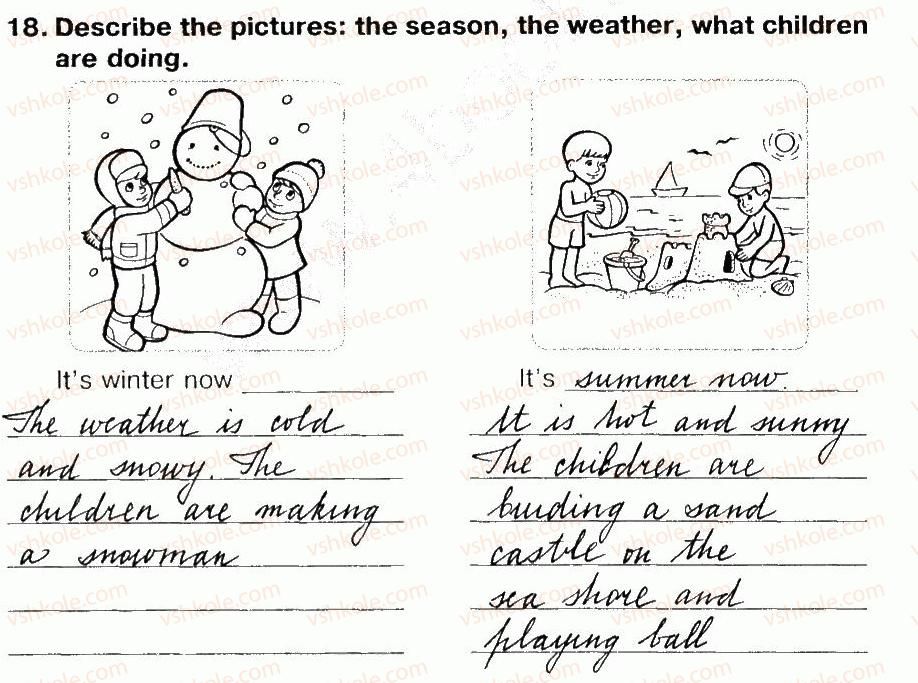 18. Describe the pictures: the season, the weather, what children
are doing.
It's winter now
The weather is cold
and snowy. The
children are making
a snowman
It's summer now.
It is hot and sunny
The children are
buiding a sand
castle on the
sea shore and
playing ball
vshkole.com